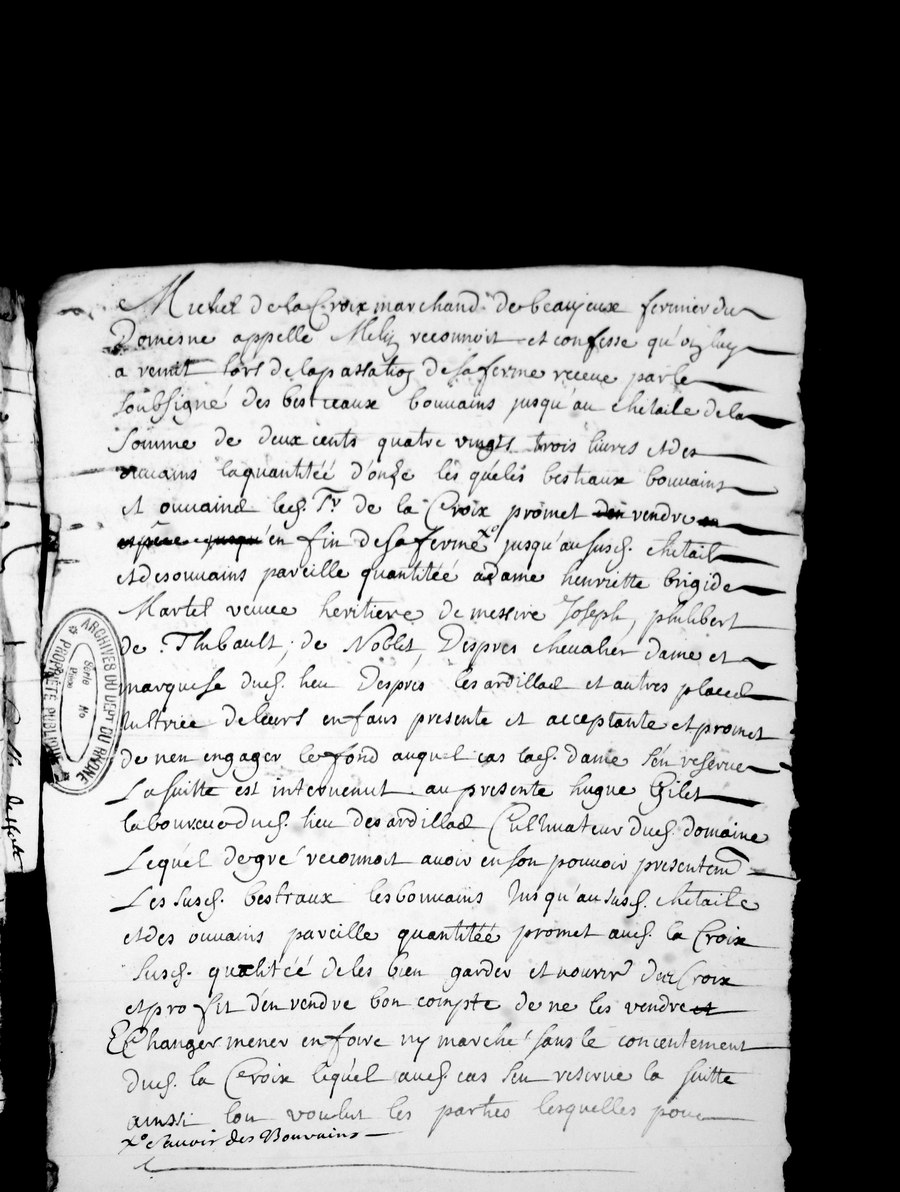 Michel de la Croix marchand de beaujeux fermier du
Domesne appelle Meliz reconnoit et confesse qu'on luy
a remit lors de la passation de sa ferme receue par le
soubsigné des bestieaux bouvains jusqu'au chetaile de la
somme de deux cents quatre vingts trois livres et des
ouvains la quantitéé d'onze les quéles bestiaux bouvains
et ouvaine led. Sr. de la Croix promet d'en vendre
en fin de sa ferme xo jusqu'au susd. chetail
et des ouvains pareille quantitéé a dame henriette brigide
Martel veuve heritiere de messire Joseph, philibert
de Thibault, de Noblet, Desprès chevalier dame et
marquise dud. lieu Desprès les ardillad et autres places
tultrice de leurs enfans presente et acceptante et promet
de nen engager le fond auquel cas lad. dame s'en reserve
La suitte est intervenut au presente hugue Gilet
laboureur dud. lieu des ardillad Cultivateur dud. domaine
Lequel de gré reconnoit avoir en son pouvoir presentemt
Les susd. bestiaux les bouvains Jusqu'au susd. chetaile
et des ouvains pareille quantitéé promet aud. la Croix
susd. qualitéé de les bien garder et nourir du Croix
et profit d'en vendre bon compte de ne les vendre et
EChanger mener en foire ny marché sans le concentement
dud. la Croix lequel aud. cas s'en reserve la suitte
ainsi lon voulut les parties lesquelles pour
xo Sauoir des Bouvains
ARCHIVES DU DEPT DU RHONE
PROPRIETE PUBLIQUE
Serie
No